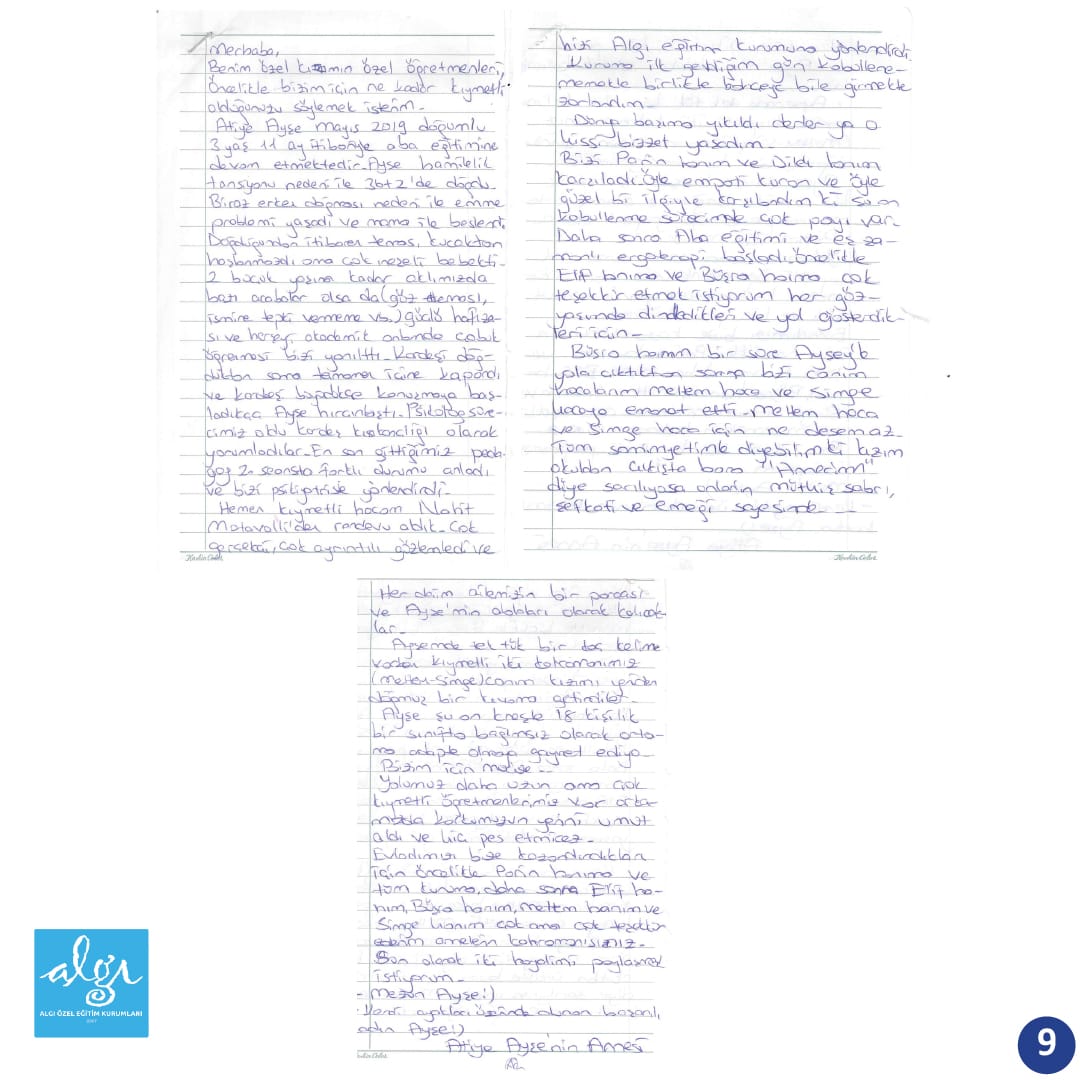 Merhaba,
Benim özel kızımın özel öğretmenleri,
Öncelikle bizim için ne kadar kıymetli
olduğunuzu söylemek isterim.
Atiye Ayşe mayıs 2019 doğumlu
3 yaş 11 ay itibariyle aba eğitimine
devam etmektedir. Ayşe hamilelik
tansiyonu nedeni ile 36+2'de doğdu.
Biraz erken doğması nedeni ile emme
problemi yaşadı ve mama ile beslendi.
Doğduğundan itibaren temas, kucaktan
hoşlanmazdı ama çok neşeli bebekti.
2 buçuk yaşına kadar aklımızda
bazı acabalar olsa da (göz teması,
ismine tepki vermeme vb.) güçlü hafıza-
sı ve herşeyi akademik anlamda çabuk
öğrenmesi bizi yanılttı. Kardeşi doğ-
duktan sonra tamamen içine kapandı
ve kardeş büyüdükçe konuşmaya baş-
ladıkça Ayşe hırçınlaştı. Psikolog süre-
cimiz oldu kardeş kıskançlığı olarak
yorumladılar. En son gittiğimiz peda-
gog 2. seansta farklı durumu anladı
ve bizi psikiatriste yönlendirdi.
Hemen kıymetli hocam Nahit
Motavallı'dan randevu aldık. Çok
gerçekçi, çok ayrıntılı gözlemledi ve
Kadin Cebe
bizi Algı eğitim kurumuna yönlendirdi.
Kuruma ilk geldiğim gün kabullene-
memekle birlikte bahçeye bile girmekte
zorlandım.
Dünya başıma yıkıldı derler ya o
hissi bizzat yaşadım.
Bizi Parin hanım ve Dildi hanım
karşıladı. Öyle empati kuran ve öyle
güzel bi ilgiyle karşılandım ki şu an
kabullenme sürecimde çok payı var.
Daha sonra Aba eğitimi ve eş za-
manlı ergoterapi başladı. Öncelikle
Elif hanıma ve Büşra hanıma çok
teşekkür etmek istiyorum her göz-
yaşımda dinledikleri ve yol gösterdik-
leri için.
Büşra hanım bir süre Ayşeyle
yola çıktıktan sonra bizi canım
hocalarım meltem hoca ve Simge
hocaya emanet etti. Meltem hoca
ve Simge hoca için ne desem az.
Tüm samimiyetimle diyebilirim ki kızım
okuldan çıkışta bana "Annecimm"
diye sarılıyosa onların müthiş sabrı,
şefkati ve emeği sayesinde...
Kadin Cebe
Her daim ailemizin bir parçası
ve Ayşe'nin ablaları olarak kalıcak-
lar.
Ayşemde tek tük bir kaç kelime
varken kıymetli iki kahramanımız
(meltem-Simge) canım kızımı yeniden
doğmuz bir kıvama getirdiler.
Ayşe şu an kreşte 18 kişilik
bir sınıfta bağımsız olarak orta-
ma adapte olmaya gayret ediyo.
Bizim için mucize...
Yolumuz daha uzun ama çok
kıymetli öğretmenlerimiz var orta-
mızda korkumuzun yerini umut
aldı ve hiç pes etmicez.
Evladımızı bize kazandırdıkları
için öncelikle Parin hanıma ve
tüm kuruma, daha sonra Elif ha-
nım, Büşra hanım, meltem hanım ve
Simge hanım çok ama çok teşekkür
ederim ailemizin kahramanısınız.
Son olarak iki hayalimi paylaşmak
istiyorum.
- Mezun Ayşe:)
- Kendi ayakları üzerinde duran başarılı,
Ayşe:)
Atiye Ayşe'nin Annesi
algı
ALGI ÖZEL EĞİTİM KURUMLARI
9